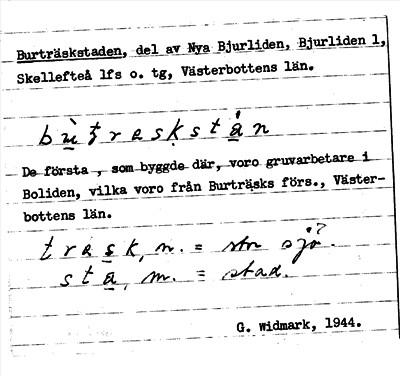 Burträskstaden, del av Nya Bjurliden, Bjurliden 1,
Skellefteå lfs o. tg, Västerbottens län.
De första, som byggde där, voro gruvarbetare i
Boliden, vilka voro från Burträsks förs., Väster-
bottens län.
trask, n. = stor sjö.
sta, m. = stad.
G. Widmark, 1944.